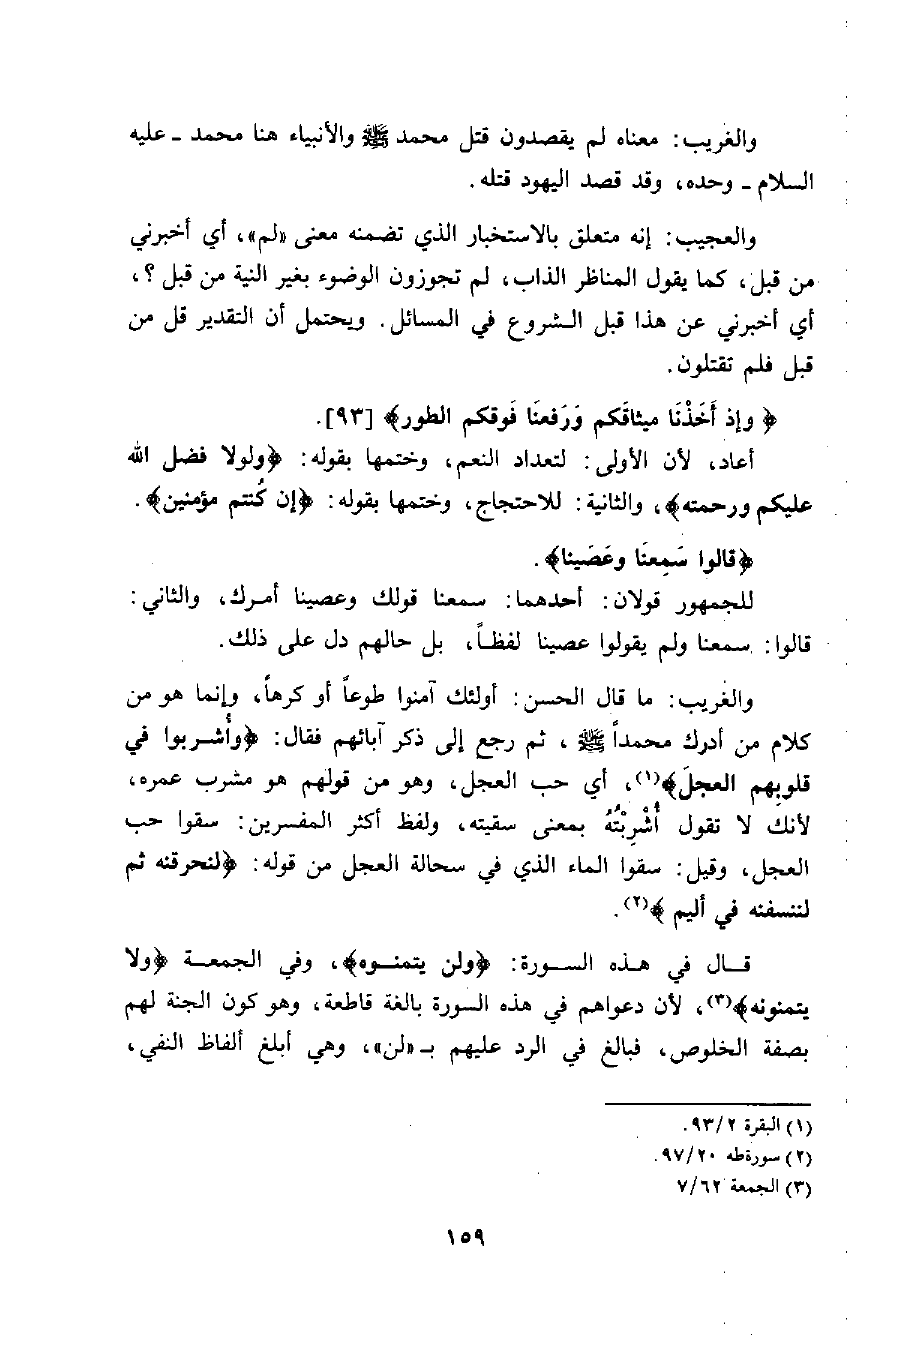 والغريب: معناه لم يقصدون قتل محمد ﷺ والأنبياء هنا محمد ـ عليه
السلام ـ وحده، وقد قصد اليهود قتله.
والعجيب: إنه متعلق بالاستخبار الذي تضمنه معنى «لم»، أي أخبرني
من قبل، كما يقول المناظر الذاب، لم تجوزون الوضوء بغير النية من قبل ؟،
أي أخبرني عن هذا قبل الشروع في المسائل. ويحتمل أن التقدير قل من
قبل فلم تقتلون.
﴿ وإذ أَخَذْنَا ميثاقَكم وَرَفعنَا فَوقكم الطور﴾ [٩٣].
أعاد، لأن الأولى: لتعداد النعم، وختمها بقوله: ﴿ولولا فضل الله
عليكم ورحمته﴾، والثانية: للاحتجاج، وختمها بقوله: ﴿إن كُنتم مؤمنين﴾.
﴿قالوا سَمِعنَا وعَصَينا﴾.
للجمهور قولان: أحدهما: سمعنا قولك وعصينا أمرك، والثاني:
قالوا: سمعنا ولم يقولوا عصينا لفظاً، بل حالهم دل على ذلك.
والغريب: ما قال الحسن: أولئك آمنوا طوعاً أو كرهاً، وإنما هو من
كلام من أدرك محمداً ﷺ ، ثم رجع إلى ذكر آبائهم فقال: ﴿وأُشربوا في
قلوبِهم العجلَ﴾(١)، أي حب العجل، وهو من قولهم هو مشرب عمره،
لأنك لا تقول أُشْرِبْتُهُ بمعنى سقيته، ولفظ أكثر المفسرين: سقوا حب
العجل، وقيل: سقوا الماء الذي في سحالة العجل من قوله: ﴿لنحرقنه ثم
لننسفنه في أليم ﴾(٢).
قال في هذه السورة: ﴿ولن يتمنوه﴾، وفي الجمعة ﴿ولا
يتمنونه﴾(٣)، لأن دعواهم في هذه السورة بالغة قاطعة، وهو كون الجنة لهم
بصفة الخلوص، فبالغ في الرد عليهم بـ «لن»، وهي أبلغ ألفاظ النفي،
(١) البقرة ٩٣/٢.
(٢) سورةطه ٩٧/٢٠.
(٣) الجمعة ٧/٦٢
١٥٩